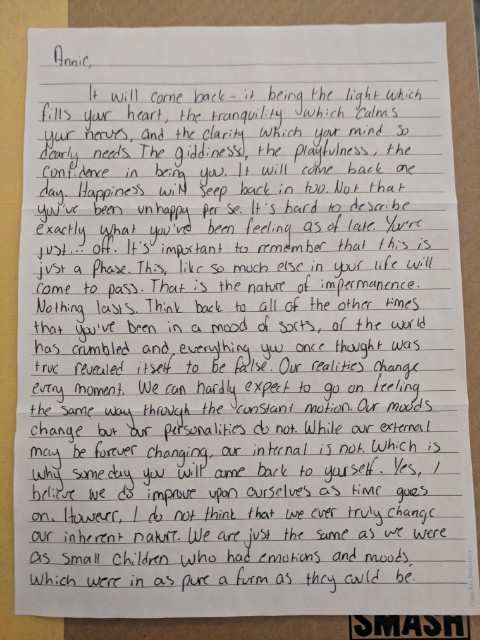 Annie,
It will come back - it being the light which
fills your heart, the tranquility which calms
your nerves, and the clarity which your mind so
dearly needs. The giddiness, the playfulness, the
confidence in being you. It will come back one
day. Happiness will seep back in too. Not that
you've been unhappy per se. It's hard to describe
exactly what you've been feeling as of late. You're
just... off. It's important to remember that this is
just a phase. This, like so much else in your life will
come to pass. That is the nature of impermanence.
Nothing lasts. Think back to all of the other times
that you've been in a mood of sorts, of the world
has crumbled and everything you once thought was
true revealed itself to be false. Our realities change
every moment. We can hardly expect to go on feeling
the same way through the constant motion. Our moods
change but our personalities do not. While our external
may be forever changing, our internal is not. Which is
why someday you will come back to yourself. Yes, I
believe we do improve upon ourselves as time goes
on. However, I do not think that we ever truly change
our inherent nature. We are just the same as we were
as small children who had emotions and moods,
which were in as pure a form as they could be.
SMASH